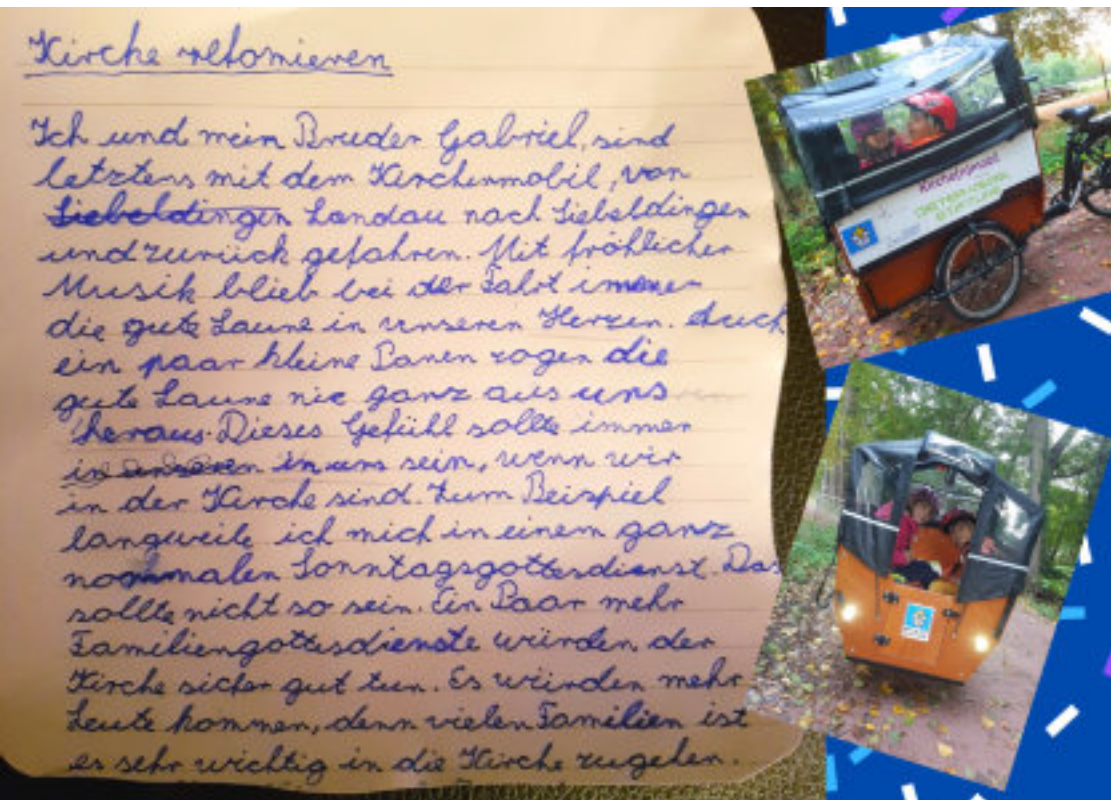 Kirche reformieren
Ich und mein Bruder Gabriel, sind
letztens mit dem Kirchenmobil, von
Siebeldingen Landau nach Siebeldingen
und zurück gefahren. Mit fröhlicher
Musik blieb bei der Fahrt immer
die gute Laune in unseren Herzen. Auch
ein paar kleine Panen zogen die
gute Laune nie ganz aus uns
heraus. Dieses Gefühl sollte immer
in unseren in uns sein, wenn wir
in der Kirche sind. Zum Beispiel
langweile ich mich in einem ganz
normalen Sonntagsgottesdienst. Das
sollte nicht so sein. Ein Paar mehr
Familiengottesdienste würden der
Kirche sicher gut tun. Es würden mehr
Leute kommen, denn vielen Familien ist
es sehr wichtig in die Kirche zugehen.
Kirchenmobil